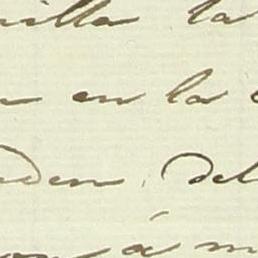 illa la
en la
den del
á